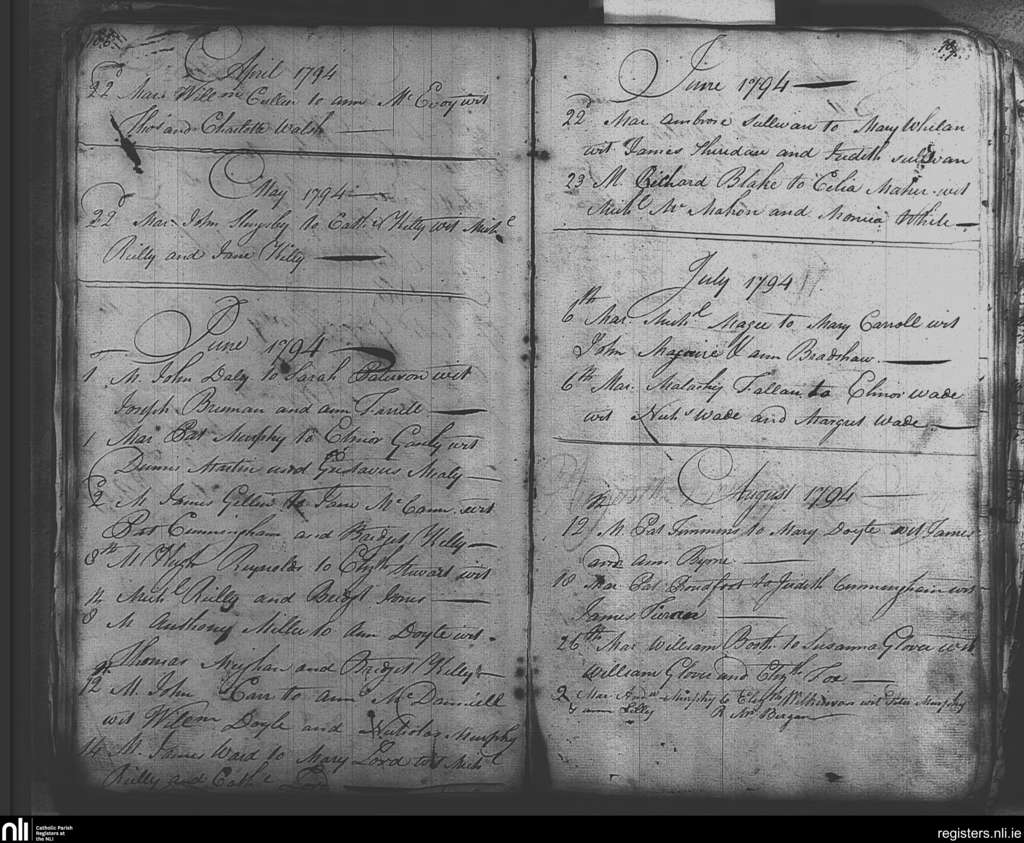 April 1794
22d Mar. Willm Cullin to ann Mc Evoy wit
Thos and Charlotte Walsh
May 1794
22d Mar John to Cathe Kelly wit Michl
Reilly and Jane Kelly
June 1794
1 M. John Daly to Sarah wit
Joseph Brennan and ann Farrell
1 Mar Pat Murphy to Elinor wit
Dennis Martin and Gustavus Mealy
2 M James to Jane Mc Cann wit
Pat Cunningham and Bridget Kelly
8th M Hugh Reynolds to Elizth Stewart wit
Michl Reilly and Bridgt Jones
8th M Anthony Miller to Ann Doyle wit
Thomas Meighan and Bridget Kelly
12th M. John Carr to ann Mc Danniell
wit Willm Doyle and Nicholas Murphy
14 M. James Ward to Mary Lord wit Michl
Reilly and Cathe Lord
June 1794
22 Mar ambrose Sullivan to Mary Whelan
wit James Sheridan and Judith Sullivan
23 M. Richard Blake to Celia Maher wit
Michl Mc Mahon and Monica White
July 1794
6th Mar. Michl Magee to Mary Carroll wit
John Maguire & ann Bradshaw
6th Mar. Malachy Fallan to Elinor Wade
wit Nichs Wade and Margret Wade
August 1794
12th M. Pat Timmins to Mary Doyle wit James
and ann Byrne
18 Mar Pat Proudfoot to Judith Cunningham wit
James
26th Mar William Booth to Susanna Glover wit
William Glover and Elizth Fox
2 Mar Andw Murphy to Elizth Wilkinson wit Peter Murphy
& ann Lilly R Mr Bergan
nli
Catholic Parish
Registers at
the NLI
registers.nli.ie